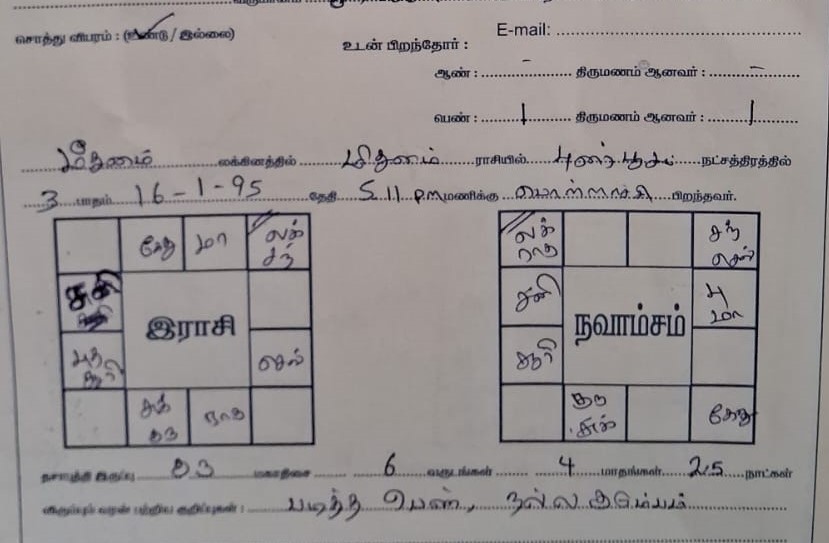 சொத்து விபரம் : (உண்டு / இல்லை)
E-mail:
உடன் பிறந்தோர் :
ஆண் : - திருமணம் ஆனவர் : -
பெண் : 1 திருமணம் ஆனவர் : 1
மிதுனம் லக்கினத்தில் மிதுனம் ராசியில் புனர்பூசம் நட்சத்திரத்தில்
3 பாதம் 16-1-95 தேதி 5.11 pm மணிக்கு பொள்ளாச்சி பிறந்தவர்.
கேது மா லக் சந்
சனி
இராசி
புத சூரி
செல்
சுக் குரு ராகு
லக் ராகு
சந் செல்
சனி
பு மா
நவாம்சம்
சூரி
குரு சுக்
கேது
தசாபுத்தி இருப்பு குரு மகாதிசை 6 வருடங்கள் 4 மாதங்கள் 25 நாட்கள்
விரும்பும் வரன் பற்றிய குறிப்புகள் : படித்த பெண், நல்ல குடும்பம்